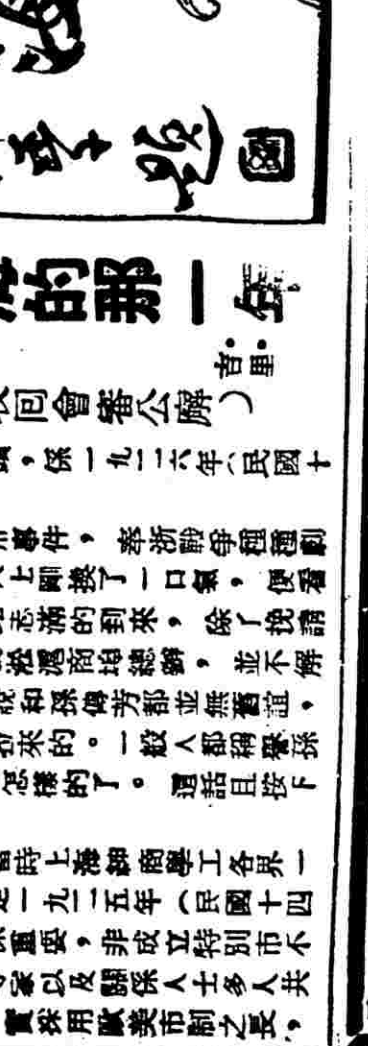 題 國
的那一年
吉里
回會審公廨）
，係一九二六年（民國十
事件，奉浙戰爭種種劇
上剛換了一口氣，便看
志滿的到來，除了挽請
淞滬商埠總辦，並不解
和孫傳芳都並無舊誼，
來的。一般人都稱譽孫
怎樣的了。這話且按下
時上海紳商學工各界一
一九二五年（民國十四
重要，非成立特別市不
家以及關係人士多人共
實採用歐美市制之長，